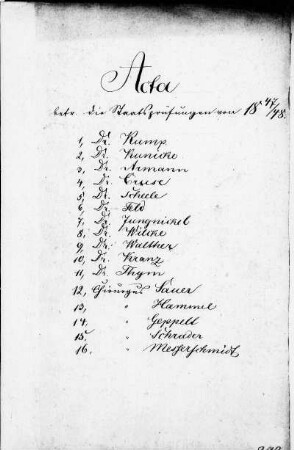 Acta
betr. die Staatsprüfungen von 18 47/48.
1, Dr. Rump
2, Dr. Kunicke
3, Dr. Armann
4, Dr. Cruse
5, Dr. Scheele
6, Dr. Feld
7, Dr. Jungnickel
8, Dr. Wilcke
9, Dr. Walther
10, Dr. Kranz
11, Dr. Thym
12, Chirurgus Sauer
13, " Hammel
14. " Geppelt
15. " Schrader
16. " Messerschmidt